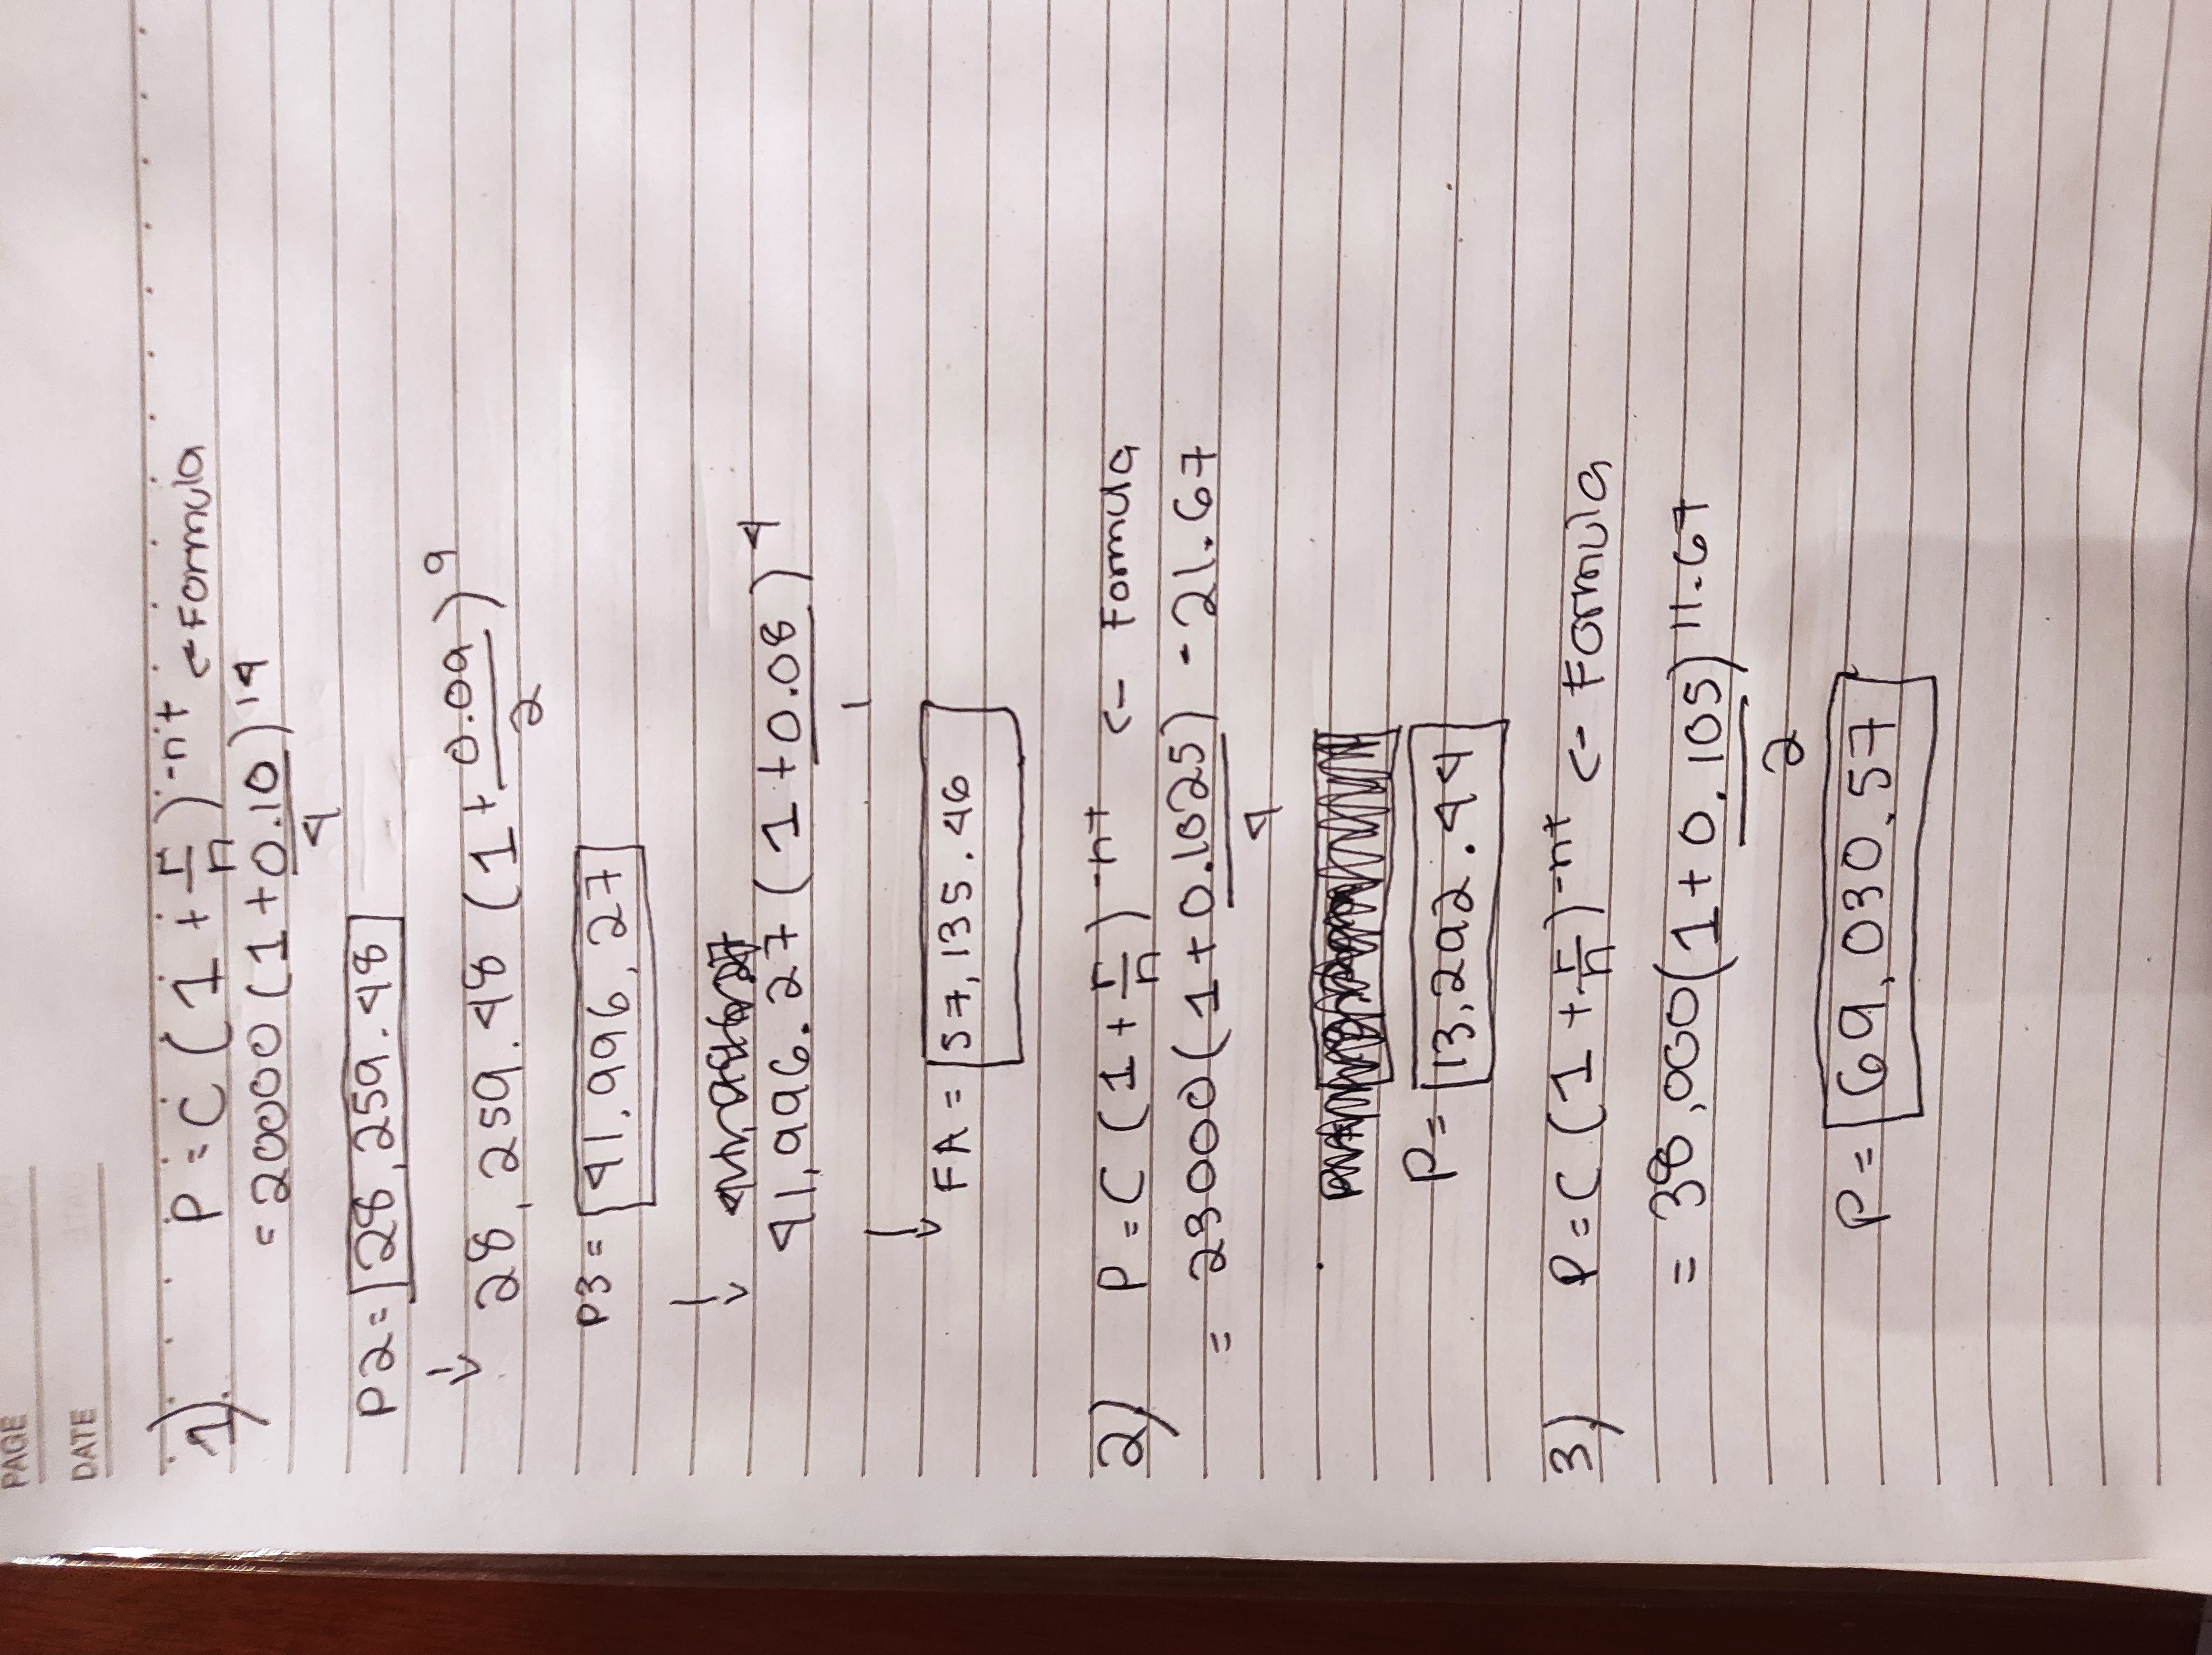 PAGE
DATE
1) P = C (1 + r/n)^-n't <- Formula
= 20000 (1 + 0.10/4)^14
P2 = 28,259.48
28,259.48 (1 + 0.09/2)^9
P3 = 41,996,27
41,996.27 (1 + 0.08/1)^4
FA = 57,135.46
2) P = C (1 + r/n)^-nt <- Formula
= 23000 (1 + 0.1025/4) - 21.67
P = 13,292.44
3) P = C (1 + r/n)^-nt <- Formula
= 38,000 (1 + 0.105/2) 11.67
P = 69,030.57